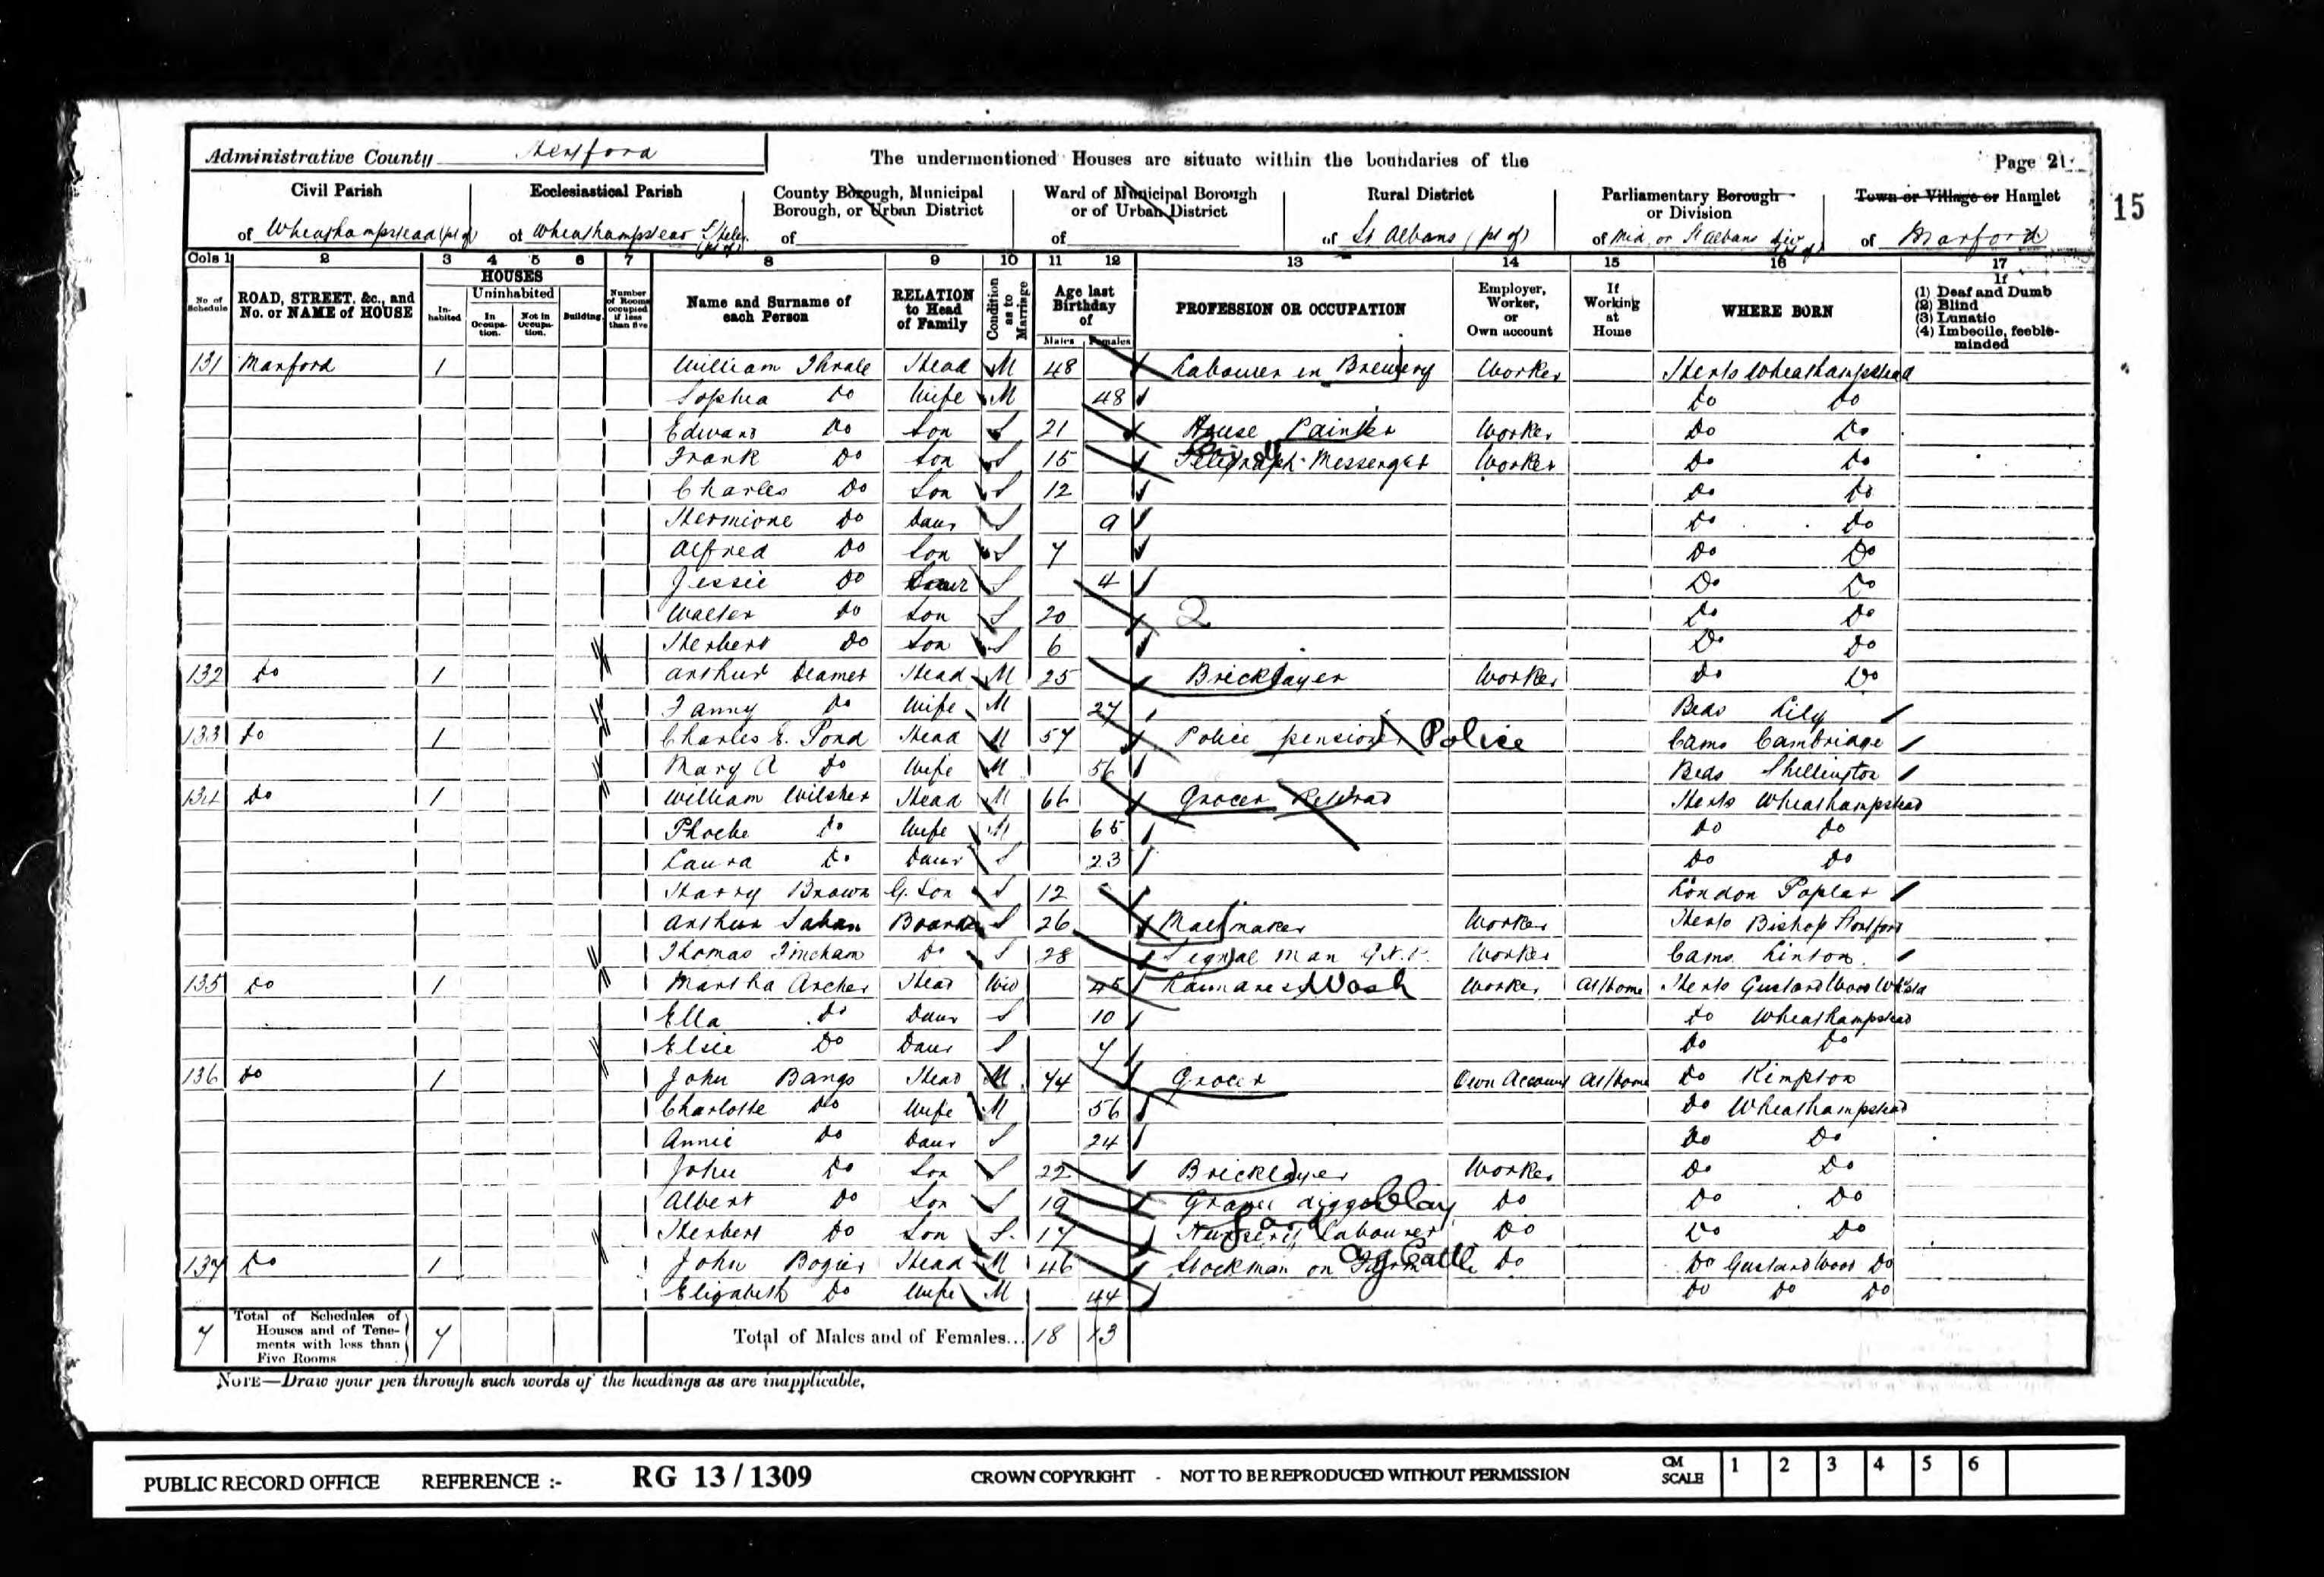 Administrative County Hertford
The undermentioned Houses are situate within the boundaries of the
Page 21
15
Civil Parish
of Wheathampstead (pt of)
Ecclesiastical Parish
of Wheathampstead St Helen (pt of)
County Borough, Municipal Borough, or Urban District
of
Ward of Municipal Borough or of Urban District
of
Rural District
of St Albans (pt of)
Parliamentary Borough or Division
of Mid or St Albans Div (pt of)
Town or Village or Hamlet
of Marford
Cols 1 2 3 4 5 6 7 8 9 10 11 12 13 14 15 16 17
No of Schedule
ROAD, STREET, &c., and No. or NAME of HOUSE
HOUSES
In-habited
Uninhabited
In Occupa-tion.
Not in Occupa-tion.
Building
Number of Rooms occupied if less than five
Name and Surname of each Person
RELATION to Head of Family
Condition as to Marriage
Age last Birthday of
Males Females
PROFESSION OR OCCUPATION
Employer, Worker, or Own account
If Working at Home
WHERE BORN
If (1) Deaf and Dumb (2) Blind (3) Lunatic (4) Imbecile, feeble-minded
131 Marford 1 William Thrale Head M 48 Labourer in Brewery Worker Herts Wheathampstead
Sophia Do Wife M 48 Do Do
Edward Do Son S 21 House Painter Worker Do Do
Frank Do Son S 15 Telegraph Messenger Worker Do Do
Charles Do Son S 12 Do Do
Hermione Do Daur S 9 Do Do
Alfred Do Son S 7 Do Do
Jessie Do Daur S 4 Do Do
Walter Do Son S 20 2 Do Do
Herbert Do Son S 6 Do Do
132 Do 1 Arthur Deamer Head M 25 Bricklayer Worker Do Do
Fanny Do Wife M 27 Beds Lily
133 Do 1 Charles E. Pond Head M 57 Police pensioner Police Cams Cambridge
Mary A Do Wife M 56 Beds Shillington
134 Do 1 William Wilsher Head M 66 Grocer Retired Herts Wheathampstead
Phoebe Do Wife M 65 Do Do
Laura Do Daur S 23 Do Do
Harry Brown G. Son S 12 London Poplar
Arthur Saban Boarder S 26 Maltmaker Worker Herts Bishop Stortford
Thomas Fincham Do S 28 Signal Man G.N.R. Worker Cams Linton
135 Do 1 Martha Archer Head Wid 45 Laundress Wash Worker At home Herts Gustard Wood
Ella Do Daur S 10 Do Wheathampstead
Elsie Do Daur S 7 Do Do
136 Do 1 John Bangs Head M 74 Grocer Own Account At home Do Kimpton
Charlotte Do Wife M 56 Do Wheathampstead
Annie Do Daur S 24 Do Do
John Do Son S 22 Bricklayer Worker Do Do
Albert Do Son S 19 Gravel digger Clay Do Do Do
Herbert Do Son S. 17 Nursery Labourer Gard Do Do Do
137 Do 1 John Bogier Head M 46 Stockman on Farm Cattle Do Do Gustard Wood Do
Elizabeth Do Wife M 44 Do Do Do
7 Total of Schedules of Houses and of Tene-ments with less than Five Rooms 7 Total of Males and of Females... 18 13
NOTE—Draw your pen through such words of the headings as are inapplicable.
PUBLIC RECORD OFFICE REFERENCE :- RG 13 / 1309 CROWN COPYRIGHT - NOT TO BE REPRODUCED WITHOUT PERMISSION CM SCALE 1 2 3 4 5 6